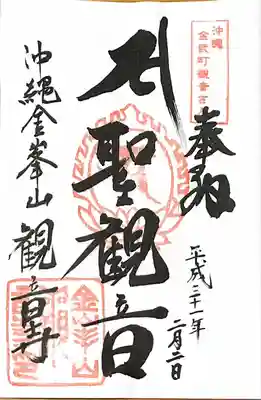 沖縄
金武町観音寺
奉拝
平成三十一年
二月二日
サ 聖観音
沖縄金峯山 観音寺
金峯山